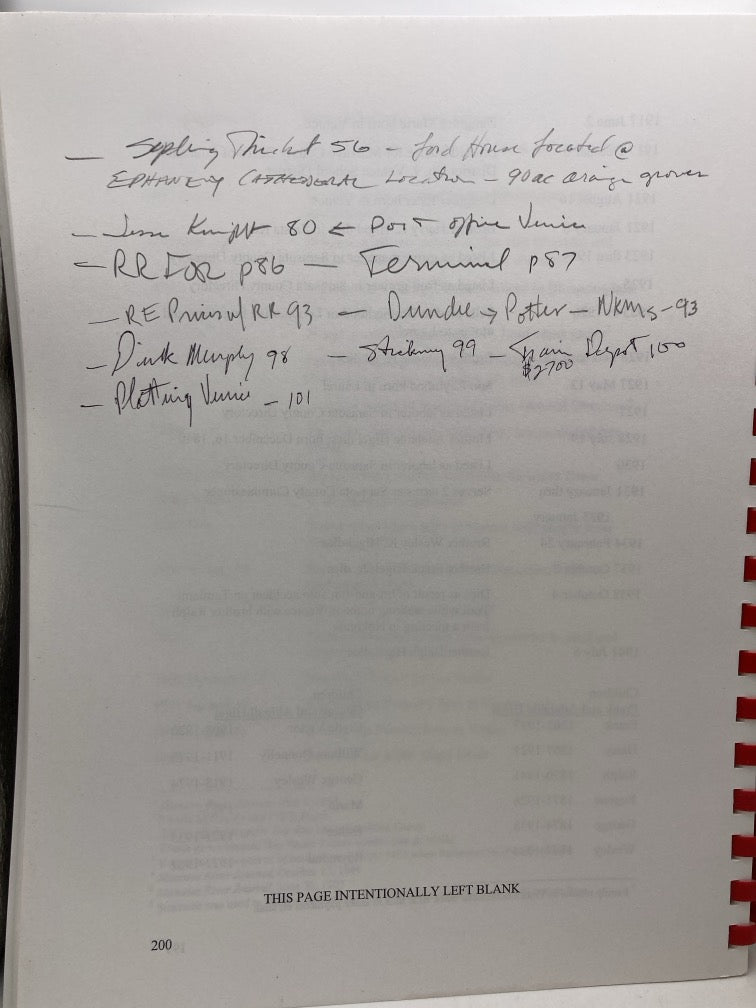 — Sapling Thicket 56 – Lord House located @
EPHANENY CATHEDERAL Location – 90ac orange groves
– Jesse Knight 80 ← Post office Venice
– RR FOR p86 — Terminal p87
– RE Prices w/ RR 93 – Dundee → Potter – Nkms – 93
– Dink Murphy 98 – Stickney 99 – Train Depot 100
$2700
– Platting Venice – 101
THIS PAGE INTENTIONALLY LEFT BLANK
200